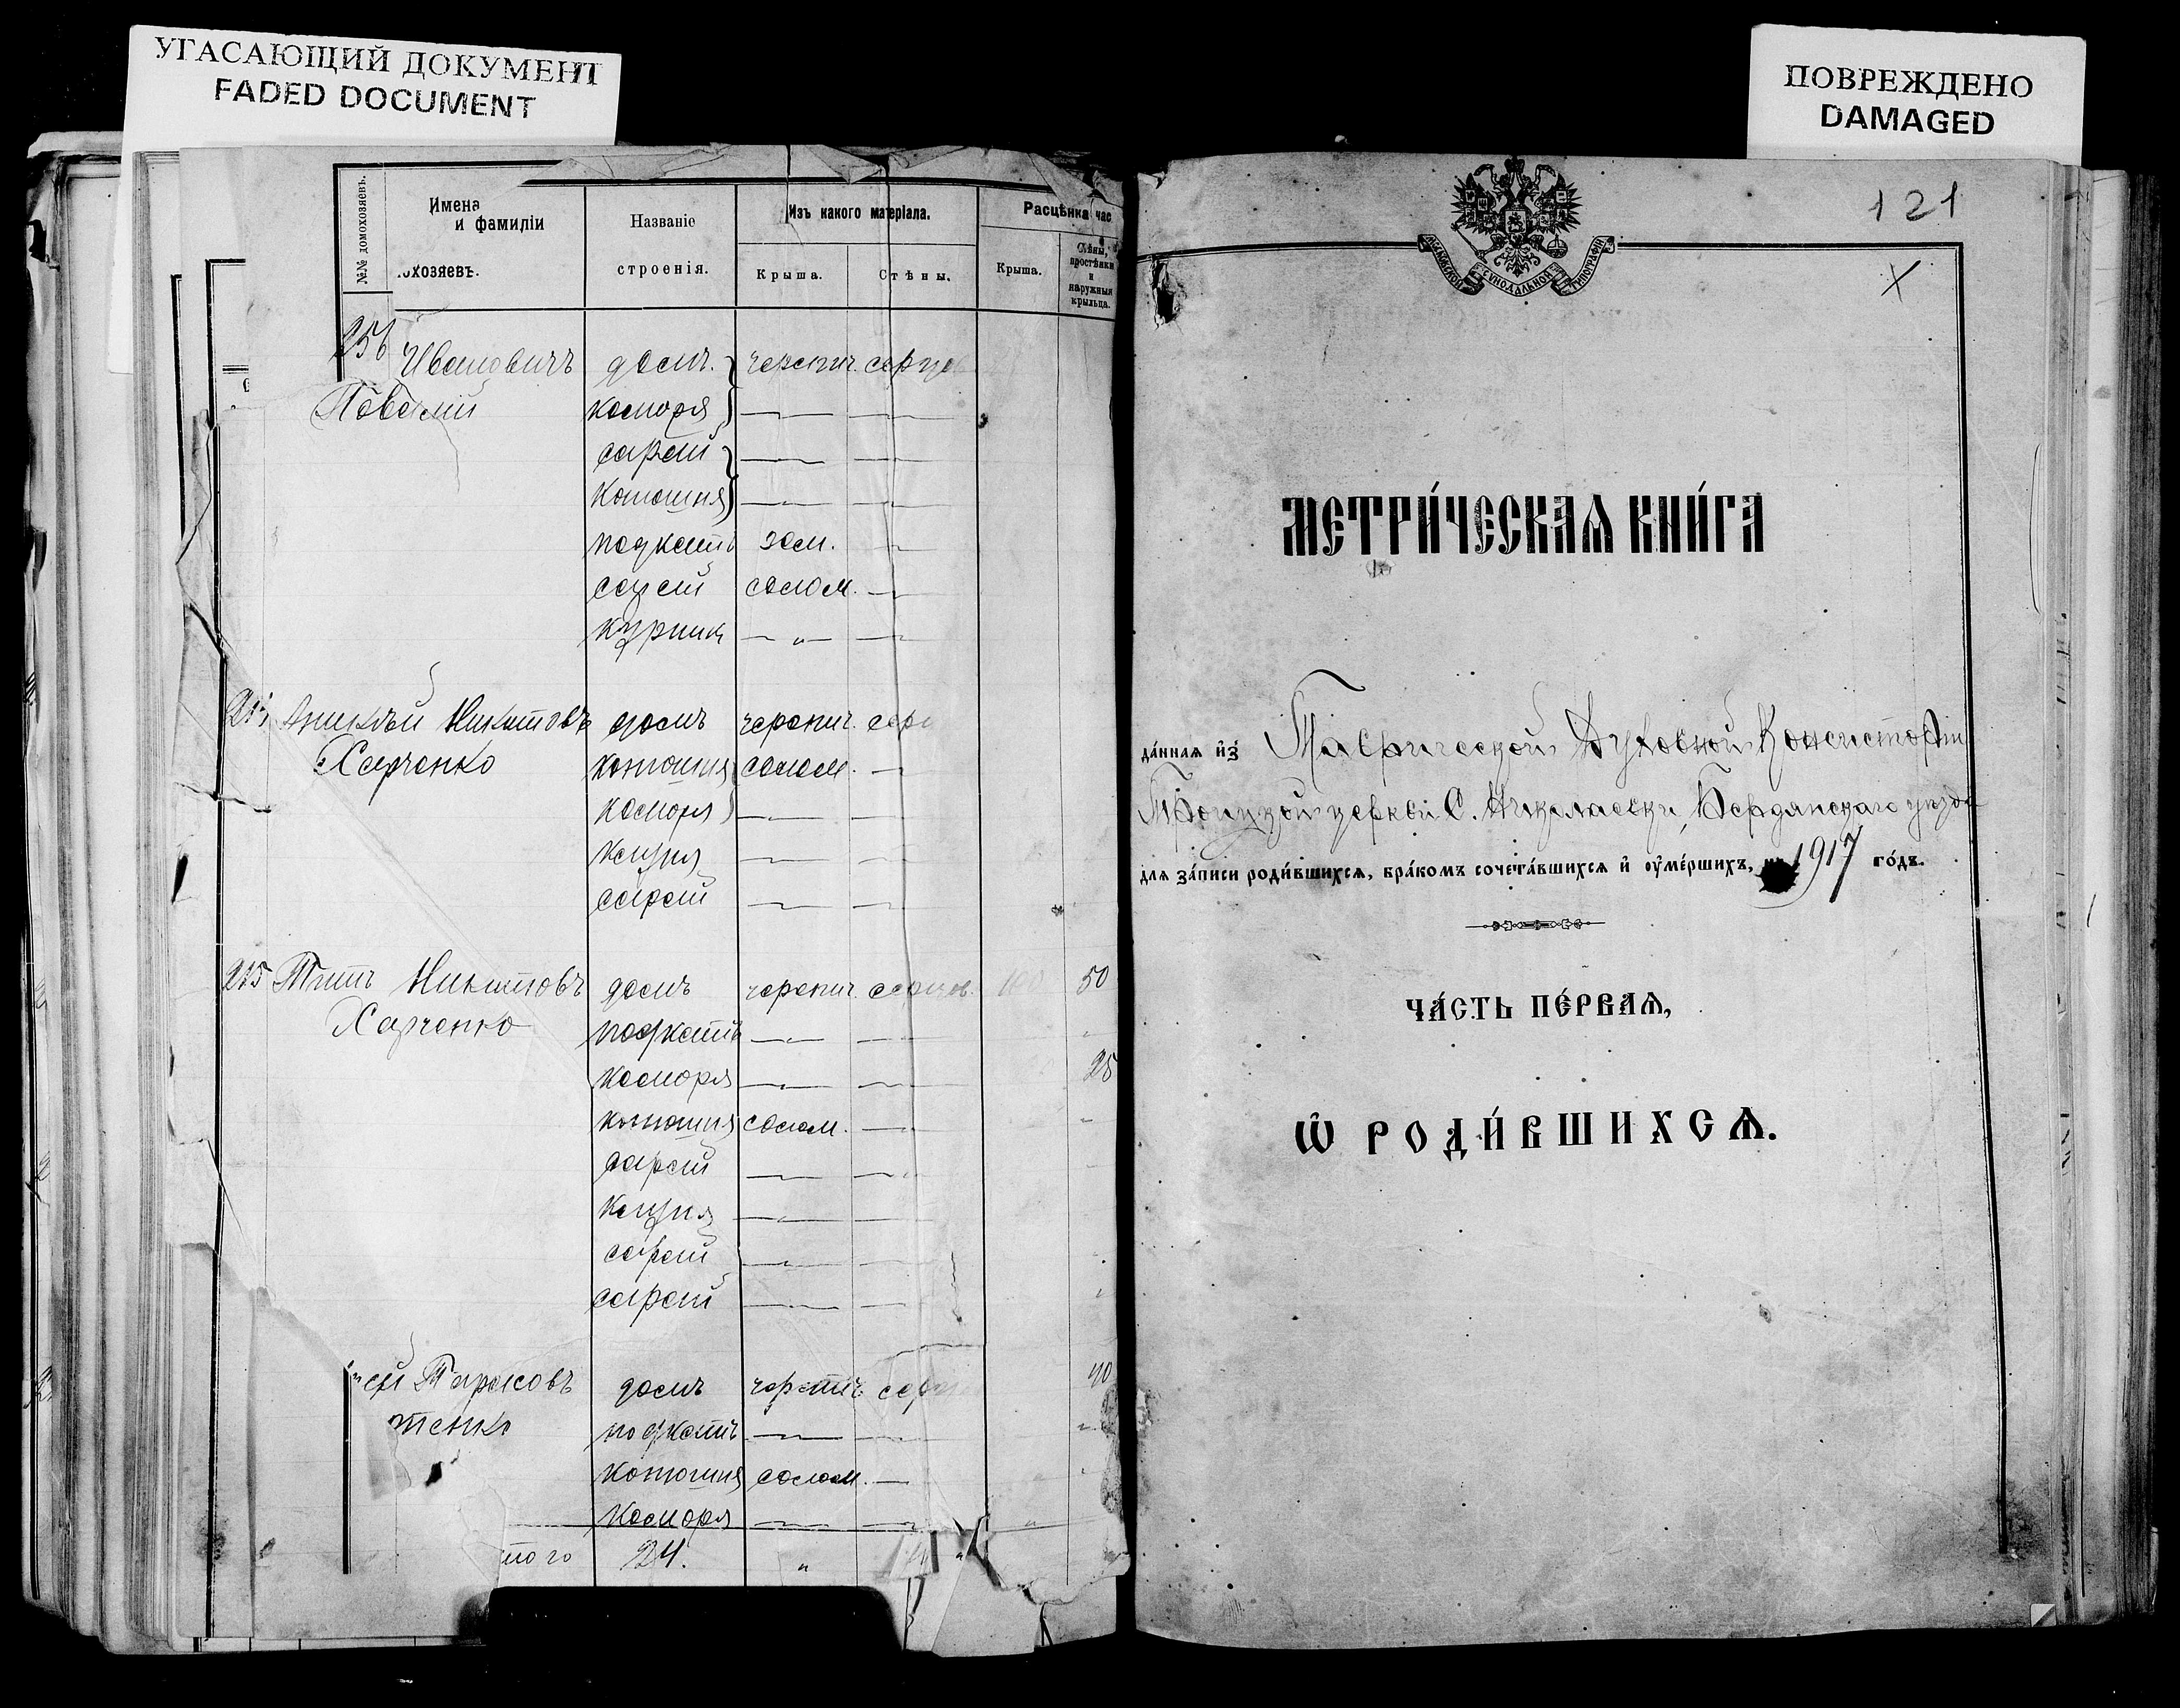 УГАСАЮЩИЙ ДОКУМЕНТ
FADED DOCUMENT
ПОВРЕЖДЕНО
DAMAGED
№№ домохозяевъ.
Имена
и фамиліи
охозяевъ.
Названіе
строенія.
Изъ какого матеріала.
Крыша.
Стѣны.
Расцѣнка час
Крыша.
Стѣны,
простѣнки
и
наружныя
крыльца.
Ивановичъ домъ. черепич.
коморя
сарай
конюшня
подкатъ зем.
сарай солом.
курник „
Никитовъ домъ черепич.
Харченко конюшня солом.
коморя
кухня
сарай
215 Титъ Никитовъ домъ черепич. 50
Харченко подкатъ
коморя 25
конюшня солом.
сарай
кухня
сарай
сарай
Тарасовъ домъ черепич. 40
тенко подкатъ
конюшня солом.
коморя
того 24. „
121
X
МОСКОВСКОЙ СѴНОДАЛЬНОЙ ТИПОГРАФІИ
МЕТРИ́ЧЕСКАѦ КНИ́ГА
да́нная и҆з̾ Таврической Духовной Консисторіи
Троицкой церкви С. Николаевки, Бердянскаго уѣзда
для за́писи роди́вшихсѧ, бра́комъ сочета́вшихсѧ и҆ ѹ҆ме́ршихъ, на 1917 го́дъ.
ЧА́СТЬ ПЕ́РВАѦ,
Ѡ҆ РОДИ́ВШИХСѦ.